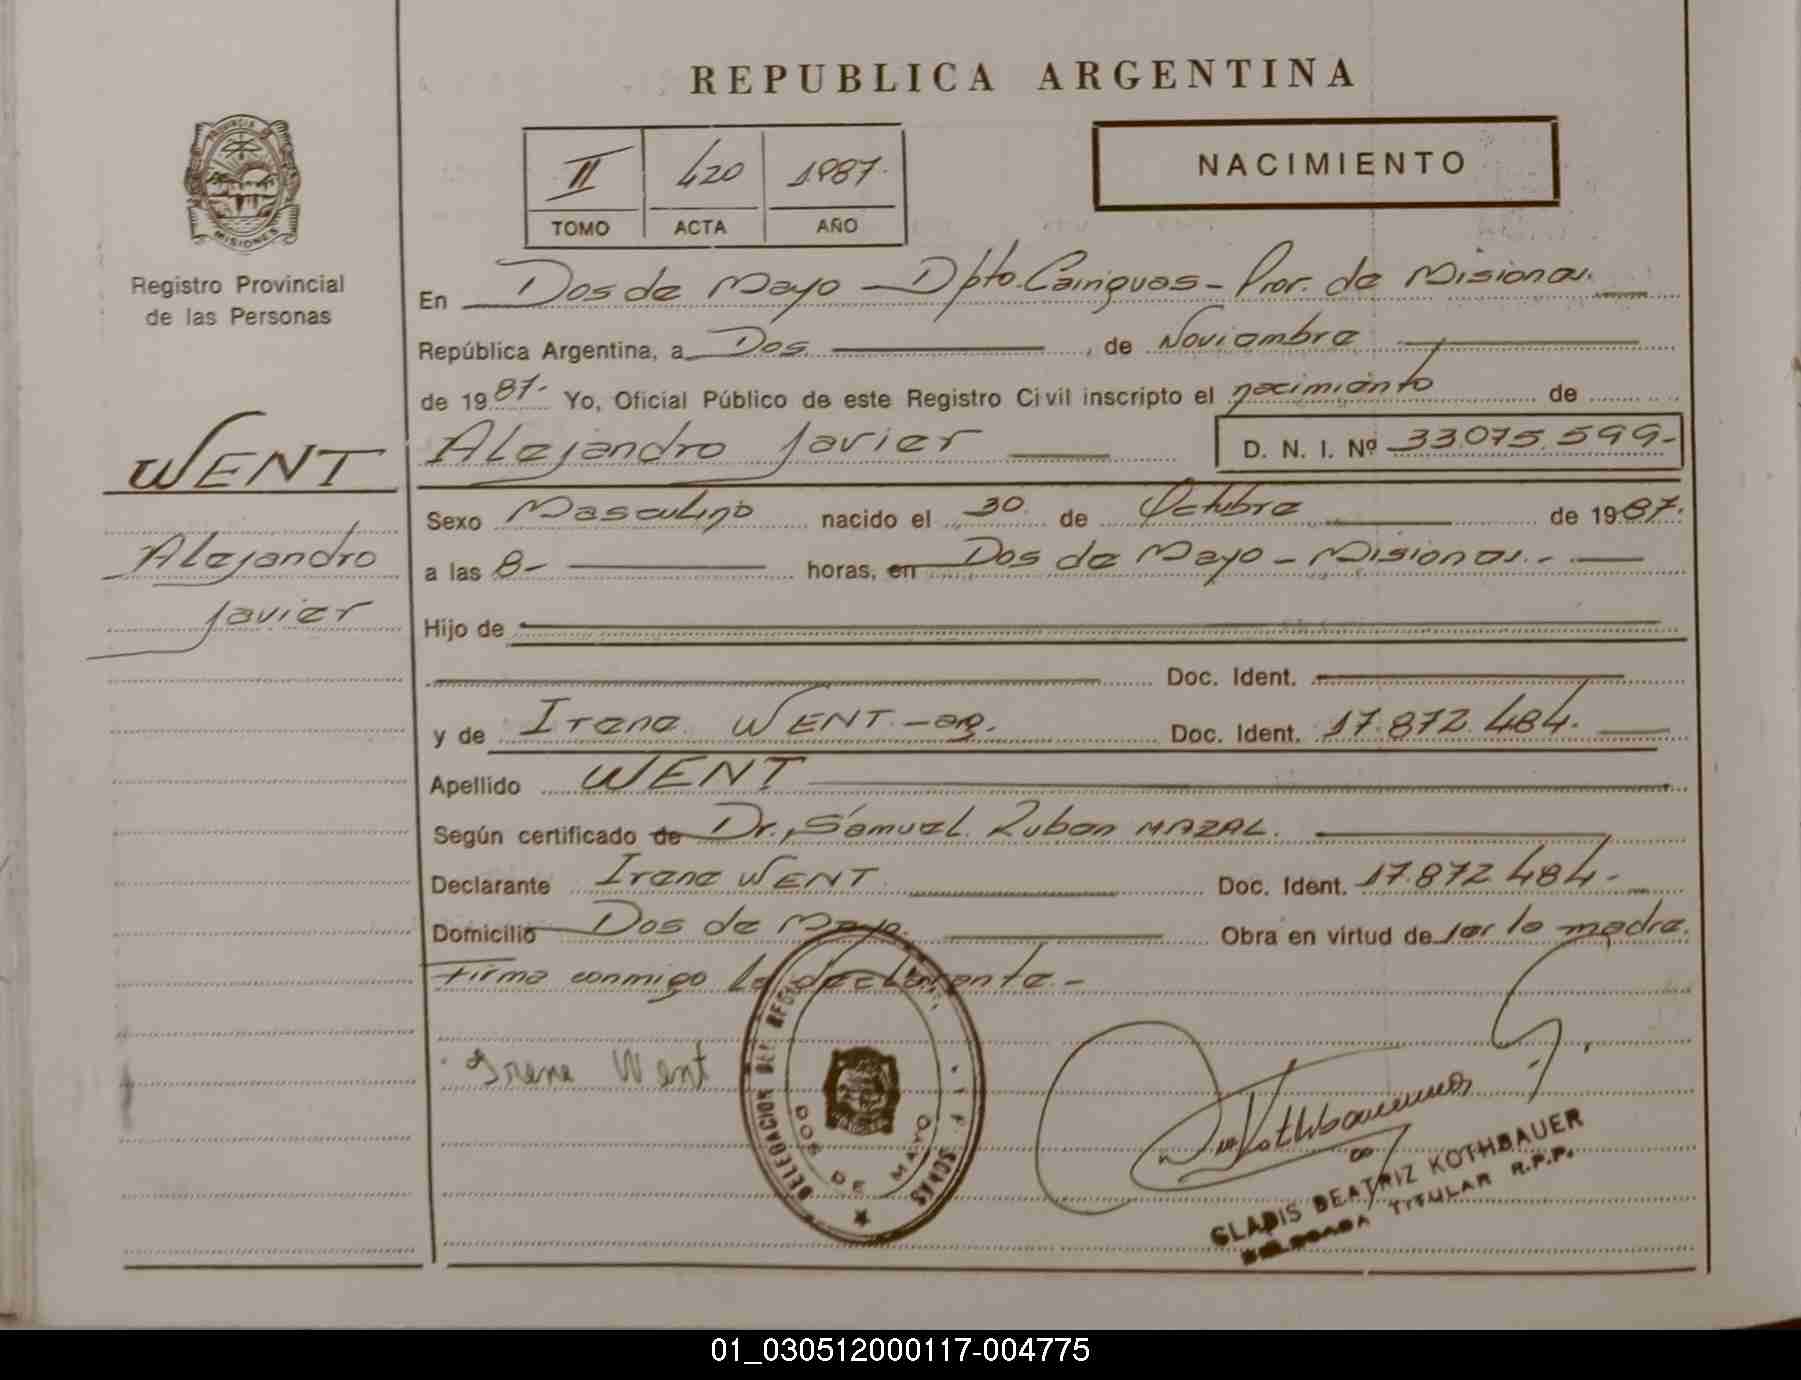 REPUBLICA ARGENTINA
PROVINCIA DE
MISIONES
Registro Provincial
de las Personas
II 420 1987.
TOMO ACTA AÑO
NACIMIENTO
En Dos de Mayo - Dpto. Cainguas - Prov. de Misiones.
República Argentina, a Dos , de Noviembre
de 1987.- Yo, Oficial Público de este Registro Civil inscripto el nacimiento de
Alejandro Javier D. N. I. Nº 33.075.599-
WENT
Alejandro
Javier
Sexo Masculino nacido el 30 de Octubre de 1987.
a las 8- horas, en Dos de Mayo - Misiones.-
Hijo de
Doc. Ident.
y de Irene WENT.-arg. Doc. Ident. 17.872.484.
Apellido WENT
Según certificado de Dr. Samuel Ruben MAZAL.
Declarante Irene WENT Doc. Ident. 17.872.484.-
Domicilio Dos de Mayo. Obra en virtud de ser la madre.
Firma conmigo la declarante.-
Irene Went
DELEGACION DEL
DOS DE MAYO
Kothbauer
GLADIS BEATRIZ KOTHBAUER
DELEGADA TITULAR R.P.P.
01_030512000117-004775